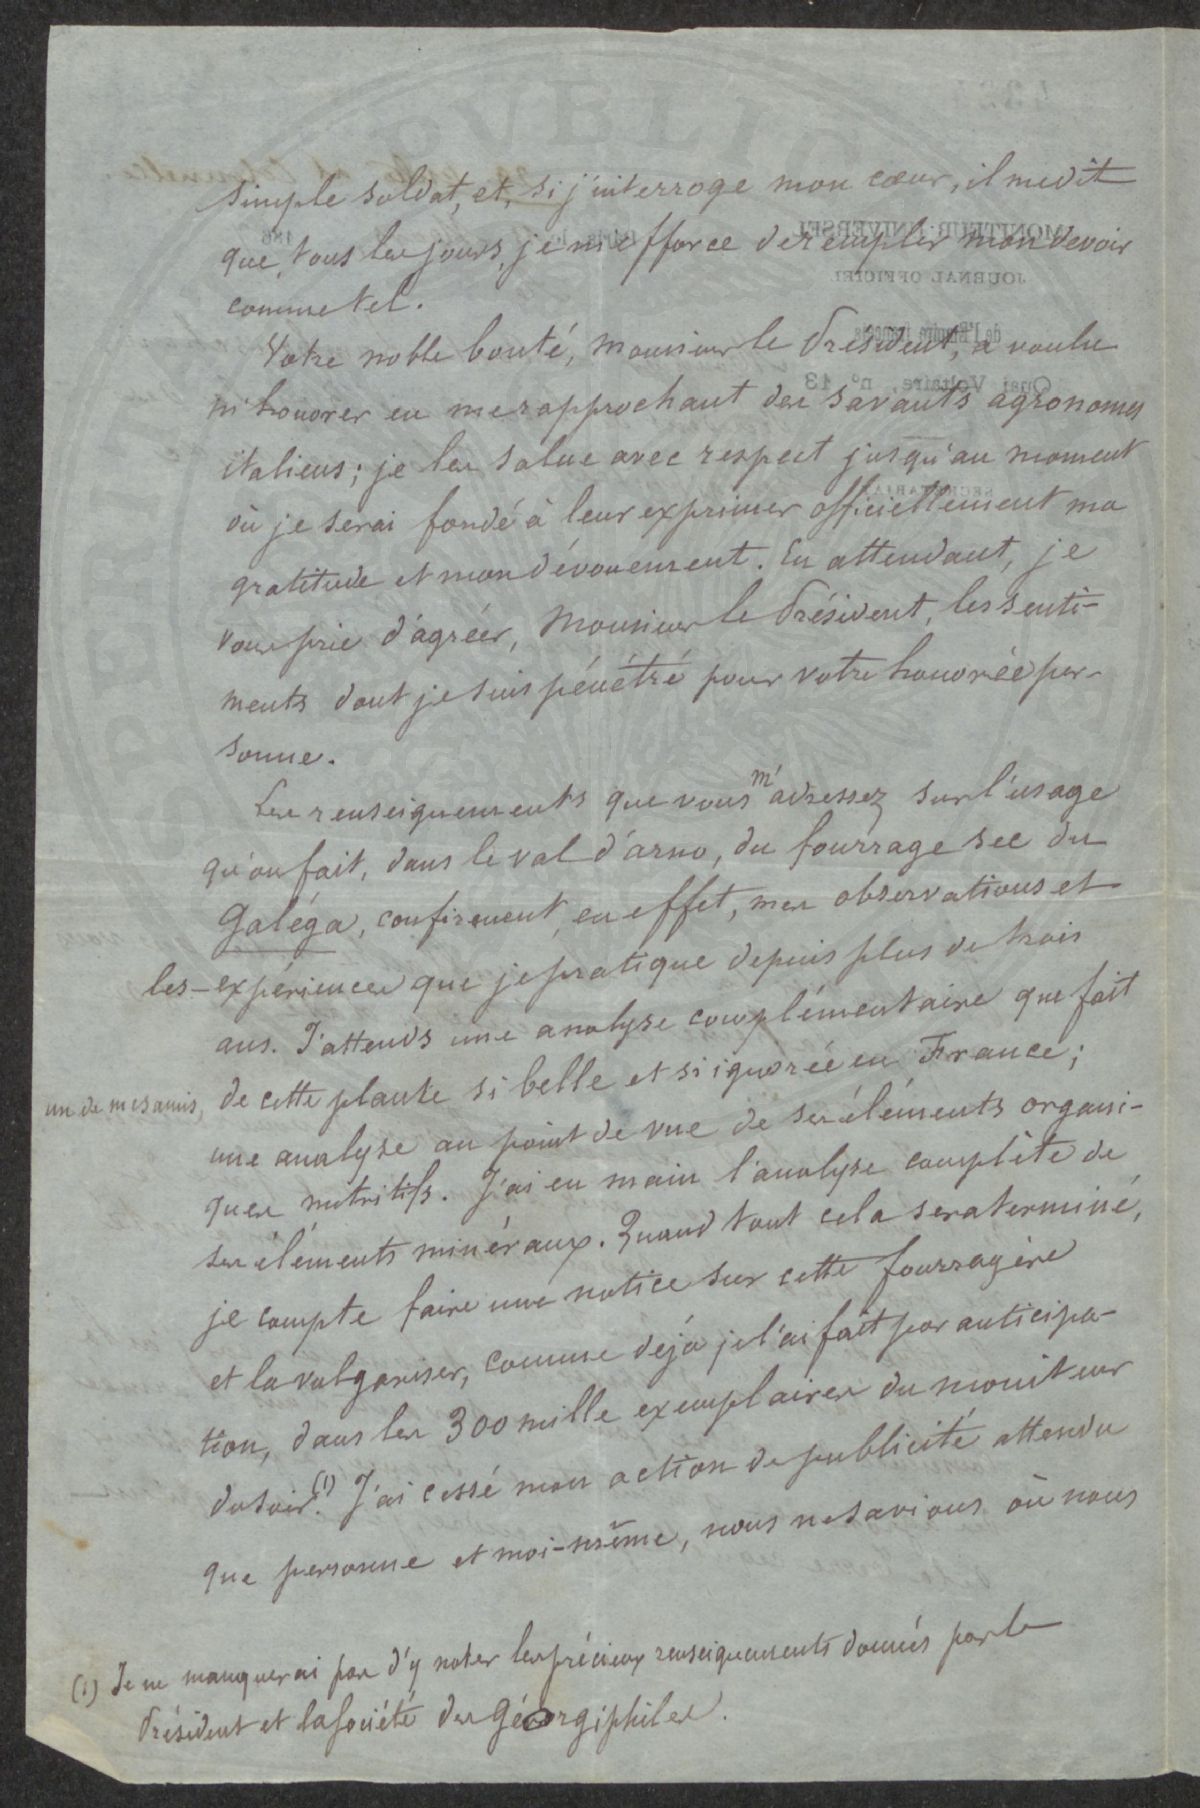 simple soldat, et, si j'interroge mon cœur, il me dit
que, tous les jours, je m'efforce de remplir mon devoir
comme tel.
Votre noble bonté, Monsieur le Président, a voulu
m'honorer en me rapprochant des savants agronomes
italiens; je les salue avec respect jusqu'au moment
où je serai fondé à leur exprimer officiellement ma
gratitude et mon dévouement. En attendant, je
vous prie d'agréer, Monsieur le Président, les senti-
ments dont je suis pénétré pour votre honorée per-
sonne.
Les renseignements que vous m'adressez sur l'usage
qu'on fait, dans le val d'arno, du fourrage sec du
Galéga, confirment, en effet, mes observations et
les expériences que je pratique depuis plus de trois
ans. J'attends une analyse complémentaire que fait
un de mes amis, de cette plante si belle et si ignorée en France;
une analyse au point de vue de ses éléments organi-
ques nutritifs. J'ai en main l'analyse complète de
ses éléments minéraux. Quand tout cela sera terminé,
je compte faire une notice sur cette fourragère
et la vulgariser, comme déjà je l'ai fait par anticipa-
tion, dans les 300 mille exemplaires du moniteur
du soir.(1) J'ai cessé mon action de publicité attendu
que personne et moi-même, nous ne savions où nous
(1) Je ne manquerai pas d'y noter les précieux renseignements donnés par le
Président et la société des Géorgiphiles.
MONITEUR UNIVERSEL
JOURNAL OFFICIEL
de l'Empire français
Quai Voltaire, n° 13
SECRÉTARIAT